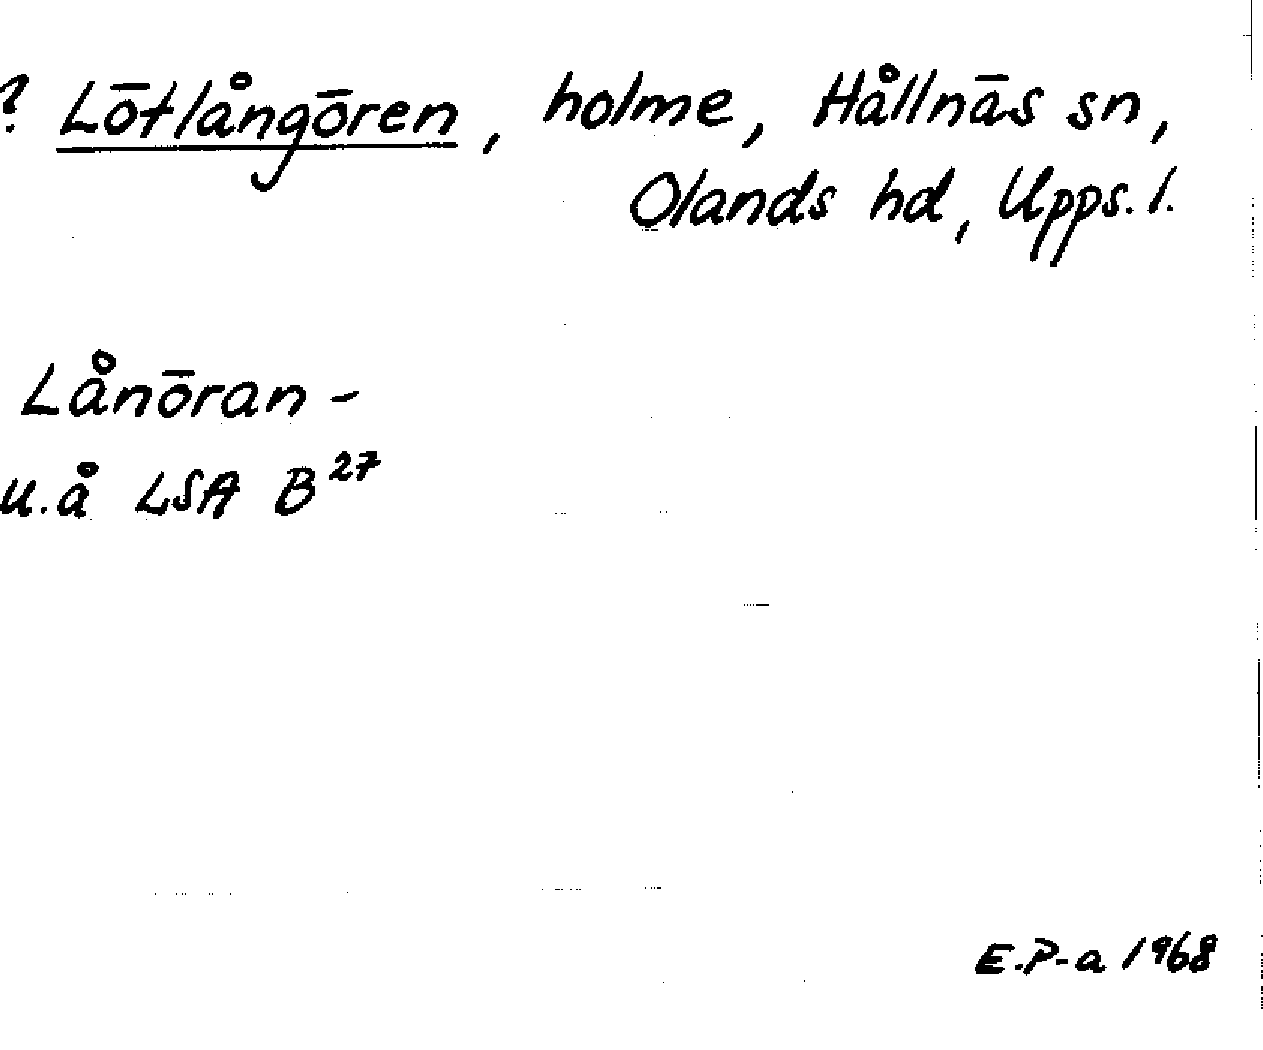 ? Lötlångören, holme, Hållnäs sn,
Olands hd, Upps. l.
Lånöran -
u.å LSA B27
E.P-a 1968